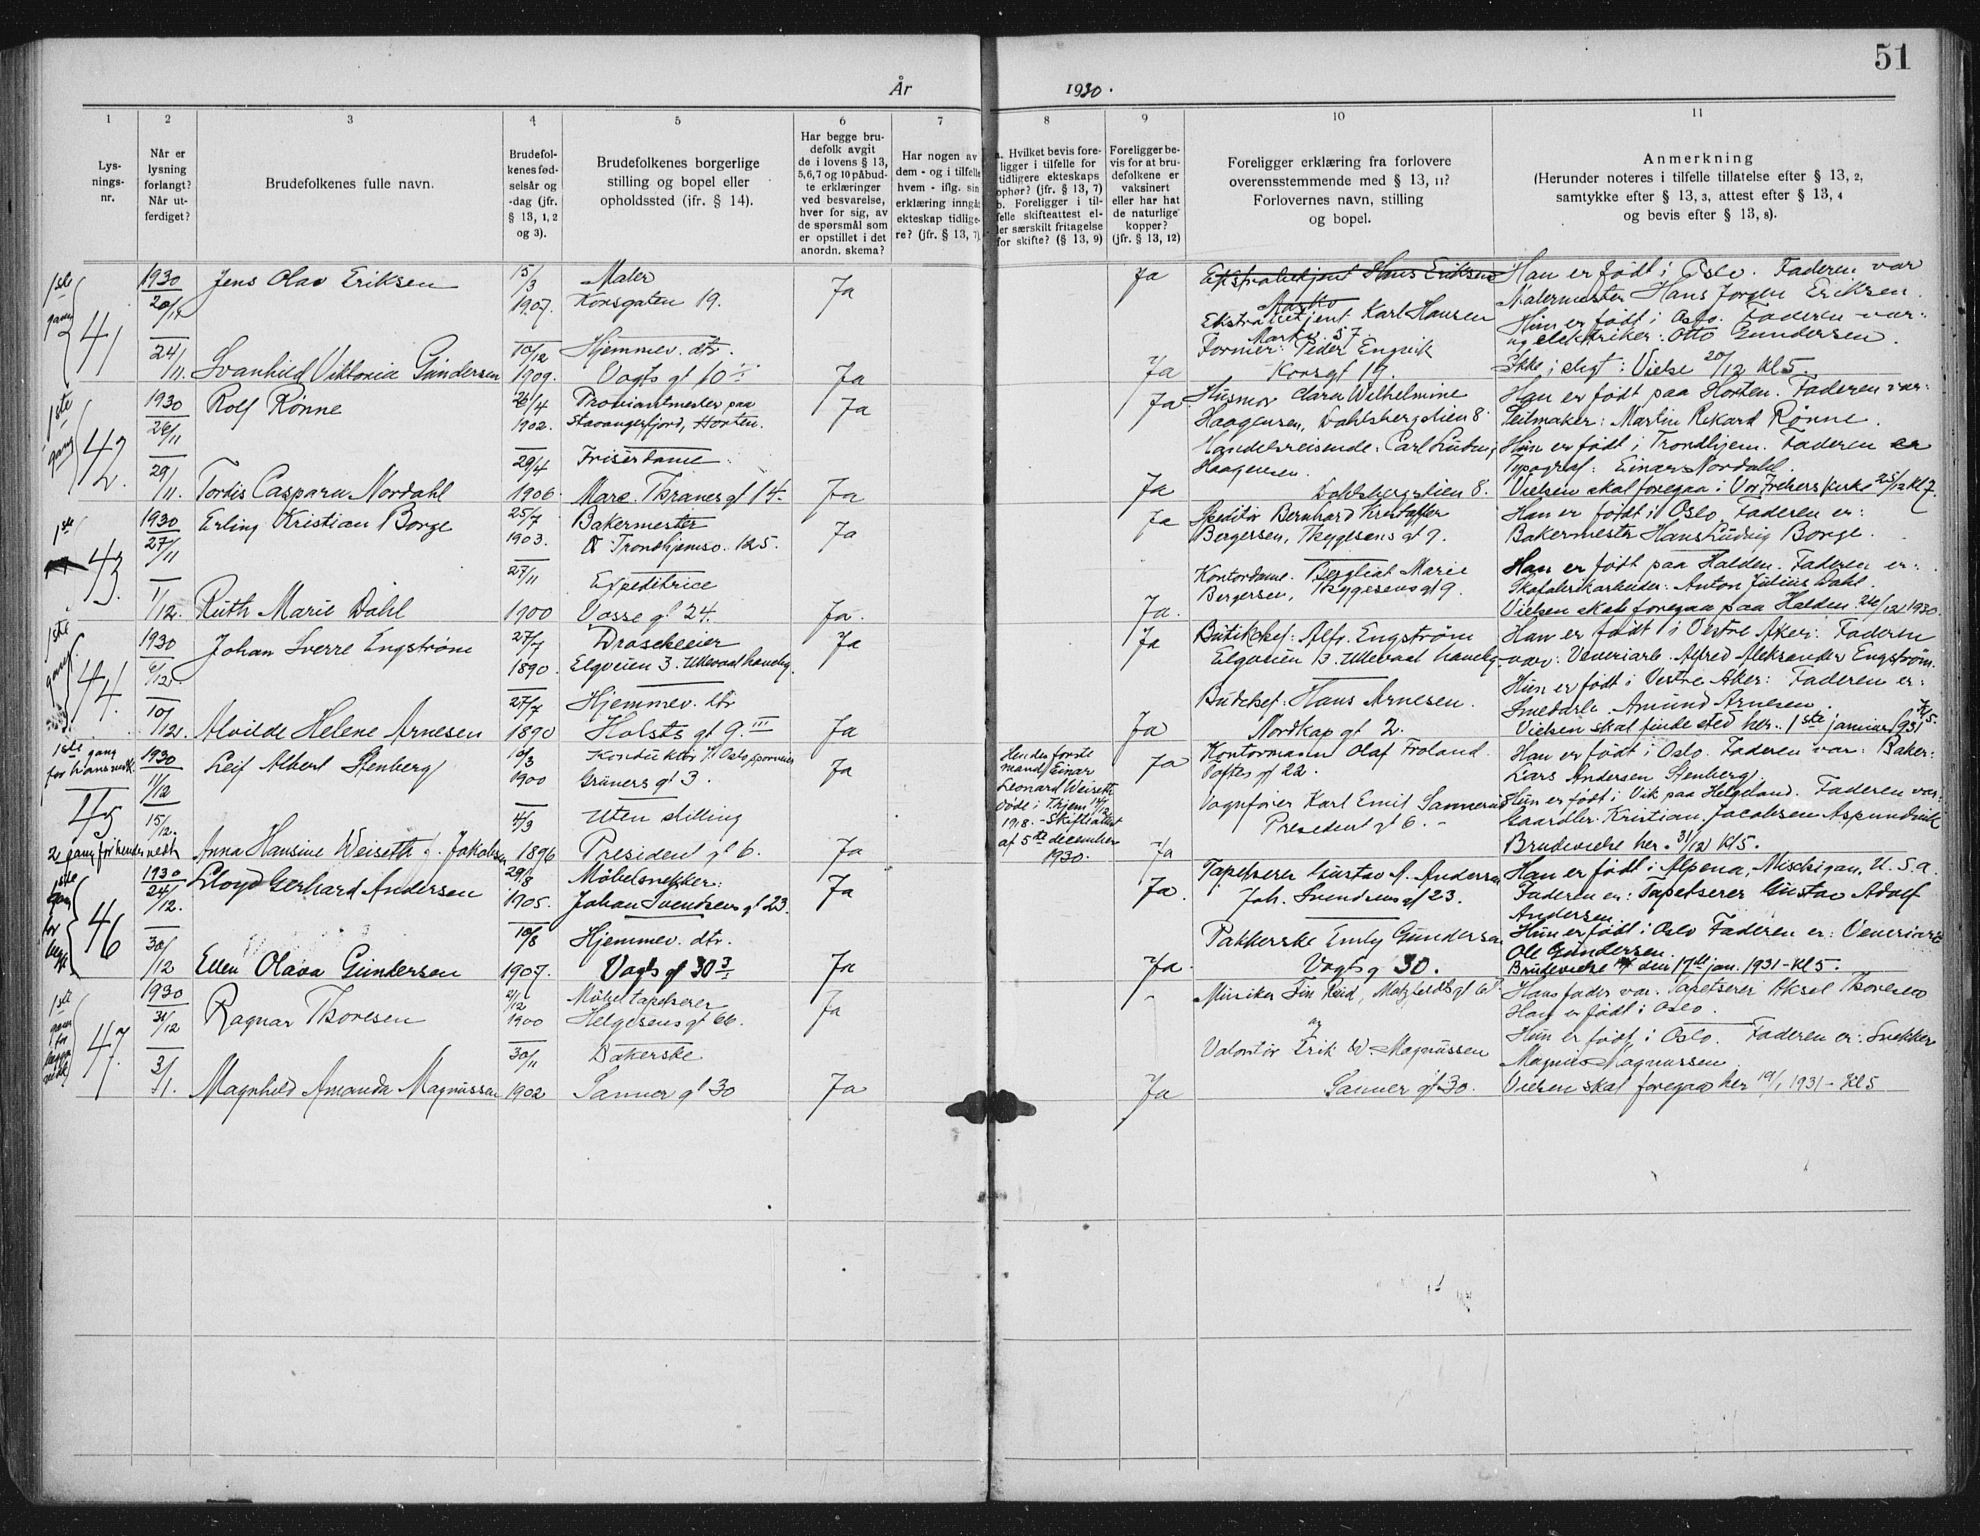 51
År 1930.
1 2 3 4 5 6 7 8 9 10 11
Lysningsnr.
Når er lysning forlangt? Når utferdiget?
Brudefolkenes fulle navn.
Brudefolkenes fødselsår og -dag (jfr. § 13, 1, 2 og 3).
Brudefolkenes borgerlige stilling og bopel eller opholdssted (ifr. § 14).
Har begge brudefolk avgit de i lovens § 13, 5, 6, 7 og 10 påbudte erklæringer ved besvarelse, hver for sig, av de spørsmål som er opstillet i det anordn. skema?
Har nogen av dem - og i tilfelle hvem - iflg. sin erklæring inngåt ekteskap tidligere? (jfr. § 13, 7)
a. Hvilket bevis foreligger i tilfelle for tidligere ekteskaps ophør? (jfr. § 13, 7) b. Foreligger i tilfelle skifteattest eller særskilt fritagelse for skifte? (§ 13, 9)
Foreligger bevis for at brudefolkene er vaksinert eller har hat de naturlige kopper? (jfr. § 13, 12)
Foreligger erklæring fra forlovere overensstemmende med § 13, 11? Forlovernes navn, stilling og bopel.
Anmerkning (Herunder noteres i tilfelle tillatelse efter § 13, 2, samtykke efter § 13, 3, attest efter § 13, 4 og bevis efter § 13, 8).
1ste gang 41
1930 20/11
24/11.
Jens Olav Eriksen
15/3 1907.
Maler
Korsgaten 19.
Ja
Ja
Ekstrabetjent Hans Eriksen
Ekstrabetjent Karl Hansen
Markv. 57.
Han er født i Oslo. Faderen var
Malermester Hans Jørgen Eriksen.
Svanhild Viktoria Gundersen
10/12 1909.
Hjemmev. dtr.
Vogts gt 10
Ja
Ja
Former: Peder Engvik
Korsgt 19.
Hun er født i Oslo. Faderen var:
elektriker: Otto Gundersen.
Ikke i slegt: Vielse 20/12 kl 5.
1ste gang 42.
1930 26/11
29/11.
Rolf Rønne
26/4 1902.
Proviantmester paa
Stavangerfjord, Horten.
Ja
Ja
Husmor Clara Wilhelmine
Haagensen, Dahlsbergstien 8.
Han er født paa Horten. Faderen var:
Seilmaker: Martin Rikard Rønne.
Tordis Caspara Nordahl
29/4 1906.
Friserdame.
Marc. Thranes gt 14.
Ja
Ja
Handelsreisende: Carl Ludvig
Haagensen.
Dahlsbergstien 8.
Hun er født i Trondhjem. Faderen er
Typograf: Einar Nordahl.
Vielsen skal foregaa i Vor Frelsers kirke 25/12 kl 7.
1ste 43.
1930 27/11
1/12.
Erling Kristian Borge
25/7 1903.
Bakermester
Trondhjemsv. 125.
Ja
Ja
Speditør Bernhard Kristoffer
Bergersen, Thygesens gt 9.
Han er født i Oslo. Faderen er:
Bakermester Hans Ludvig Borge.
Ruth Marie Dahl
27/11 1900
Expeditrice
Vosse gt 24.
Ja.
Ja.
Kontordame. Bergliot Marie
Bergersen, Thygesens gt 9.
Hun er født paa Halden. Faderen er:
Skofabrikarbeider: Anton Julius Dahl.
Vielsen skal foregaa paa Halden 26/12 1930
1ste gang 44.
1930 6/12.
10/12.
Johan Sverre Engstrøm
27/7 1890.
Droscheeier
Elgveien 3. Ullevaal haveby.
Ja
Ja
Butikchef: Alfr. Engstrøm
Elgveien 13. Ullevaal haveby.
Han er født i Vestre Aker: Faderen
var: Veveriarb. Alfred Aleksander Engstrøm.
Alvilde Helene Arnesen
27/7 1890
Hjemmev. dtr
Holsts gt 9. III
Ja
Ja
Budchef: Hans Arnesen.
Nordkap gt 2.
Hun er født i Vestre Aker: Faderen er:
Smedarb. Amund Arnesen.
Vielsen skal finde sted her. 1ste januar 1931 kl 5.
1ste gang for hans vedk.
45
2 gang for hendes vedk
1930 11/12
15/12.
Leif Albert Stenberg
6/3 1900
Konduktør v. Oslo sporveier
Grüners gt 3.
Ja
Ja
Kontormann Olaf Froland.
Toftes gt 22.
Han er født i Oslo. Faderen var: Baker:
Lars Andersen Stenberg.
Anna Hansine Weiseth f. Jakobsen
4/3 1896
Uten stilling
President gt 6.
Ja
Hendes første
mand, Einar
Leonard Weiseth
døde i Thjem 14/12
1918. - Skifteattest
af 5te december
1930.
Ja
Vognfører Karl Emil Sannerud
President gt 6. -
Hun er født i Vik paa Helgeland. Faderen var:
Gaardbr. Kristian Jacobsen Aspundvik
Brudevielse her. 31/12 kl 5.
1ste gang for begge 46
1930 24/12.
30/12
Lloyd Gerhard Andersen
29/8 1905.
Møbelsnekker:
Johan Svendsens gt 23.
Ja
Ja.
Tapetserer Gustav A. Andersen
Joh. Svendsens gt 23.
Han er født i Alpena, Mischigan, U. S. A.
Faderen er: Tapetserer Gustav Adolf
Andersen
Ellen Olava Gundersen
10/8 1907.
Hjemmev. dtr.
Vogts gt 30 3/1
Ja
Ja.
Pakkerske Emly Gundersen
Vogts g 30.
Hun er født i Oslo Faderen er: Veveriarb
Ole Gundersen.
Brudevielse den 17de jan. 1931 - kl 5.
1ste gang for begges vedk 47.
1930 31/12
3/1.
Ragnar Thoresen
2/12 1900
Møbeltapetserer
Helgesens gt 66.
Ja
-
Musiker Fin Ruud, Motzfeldts gt 6
Hans fader var. Tapetserer Aksel Thoresen
Han er født i Oslo.
Magnhild Amanda Magnussen
30/11 1902
Bakerske
Sanner gt 30
Ja
Ja
og
Valontør Erik W. Magnussen
Sanner gt 30.
Hun er født i Oslo. Faderen er: Snekker
Magnus Magnussen
Vielsen skal foregaa her 10/1 1931 - Kl 5